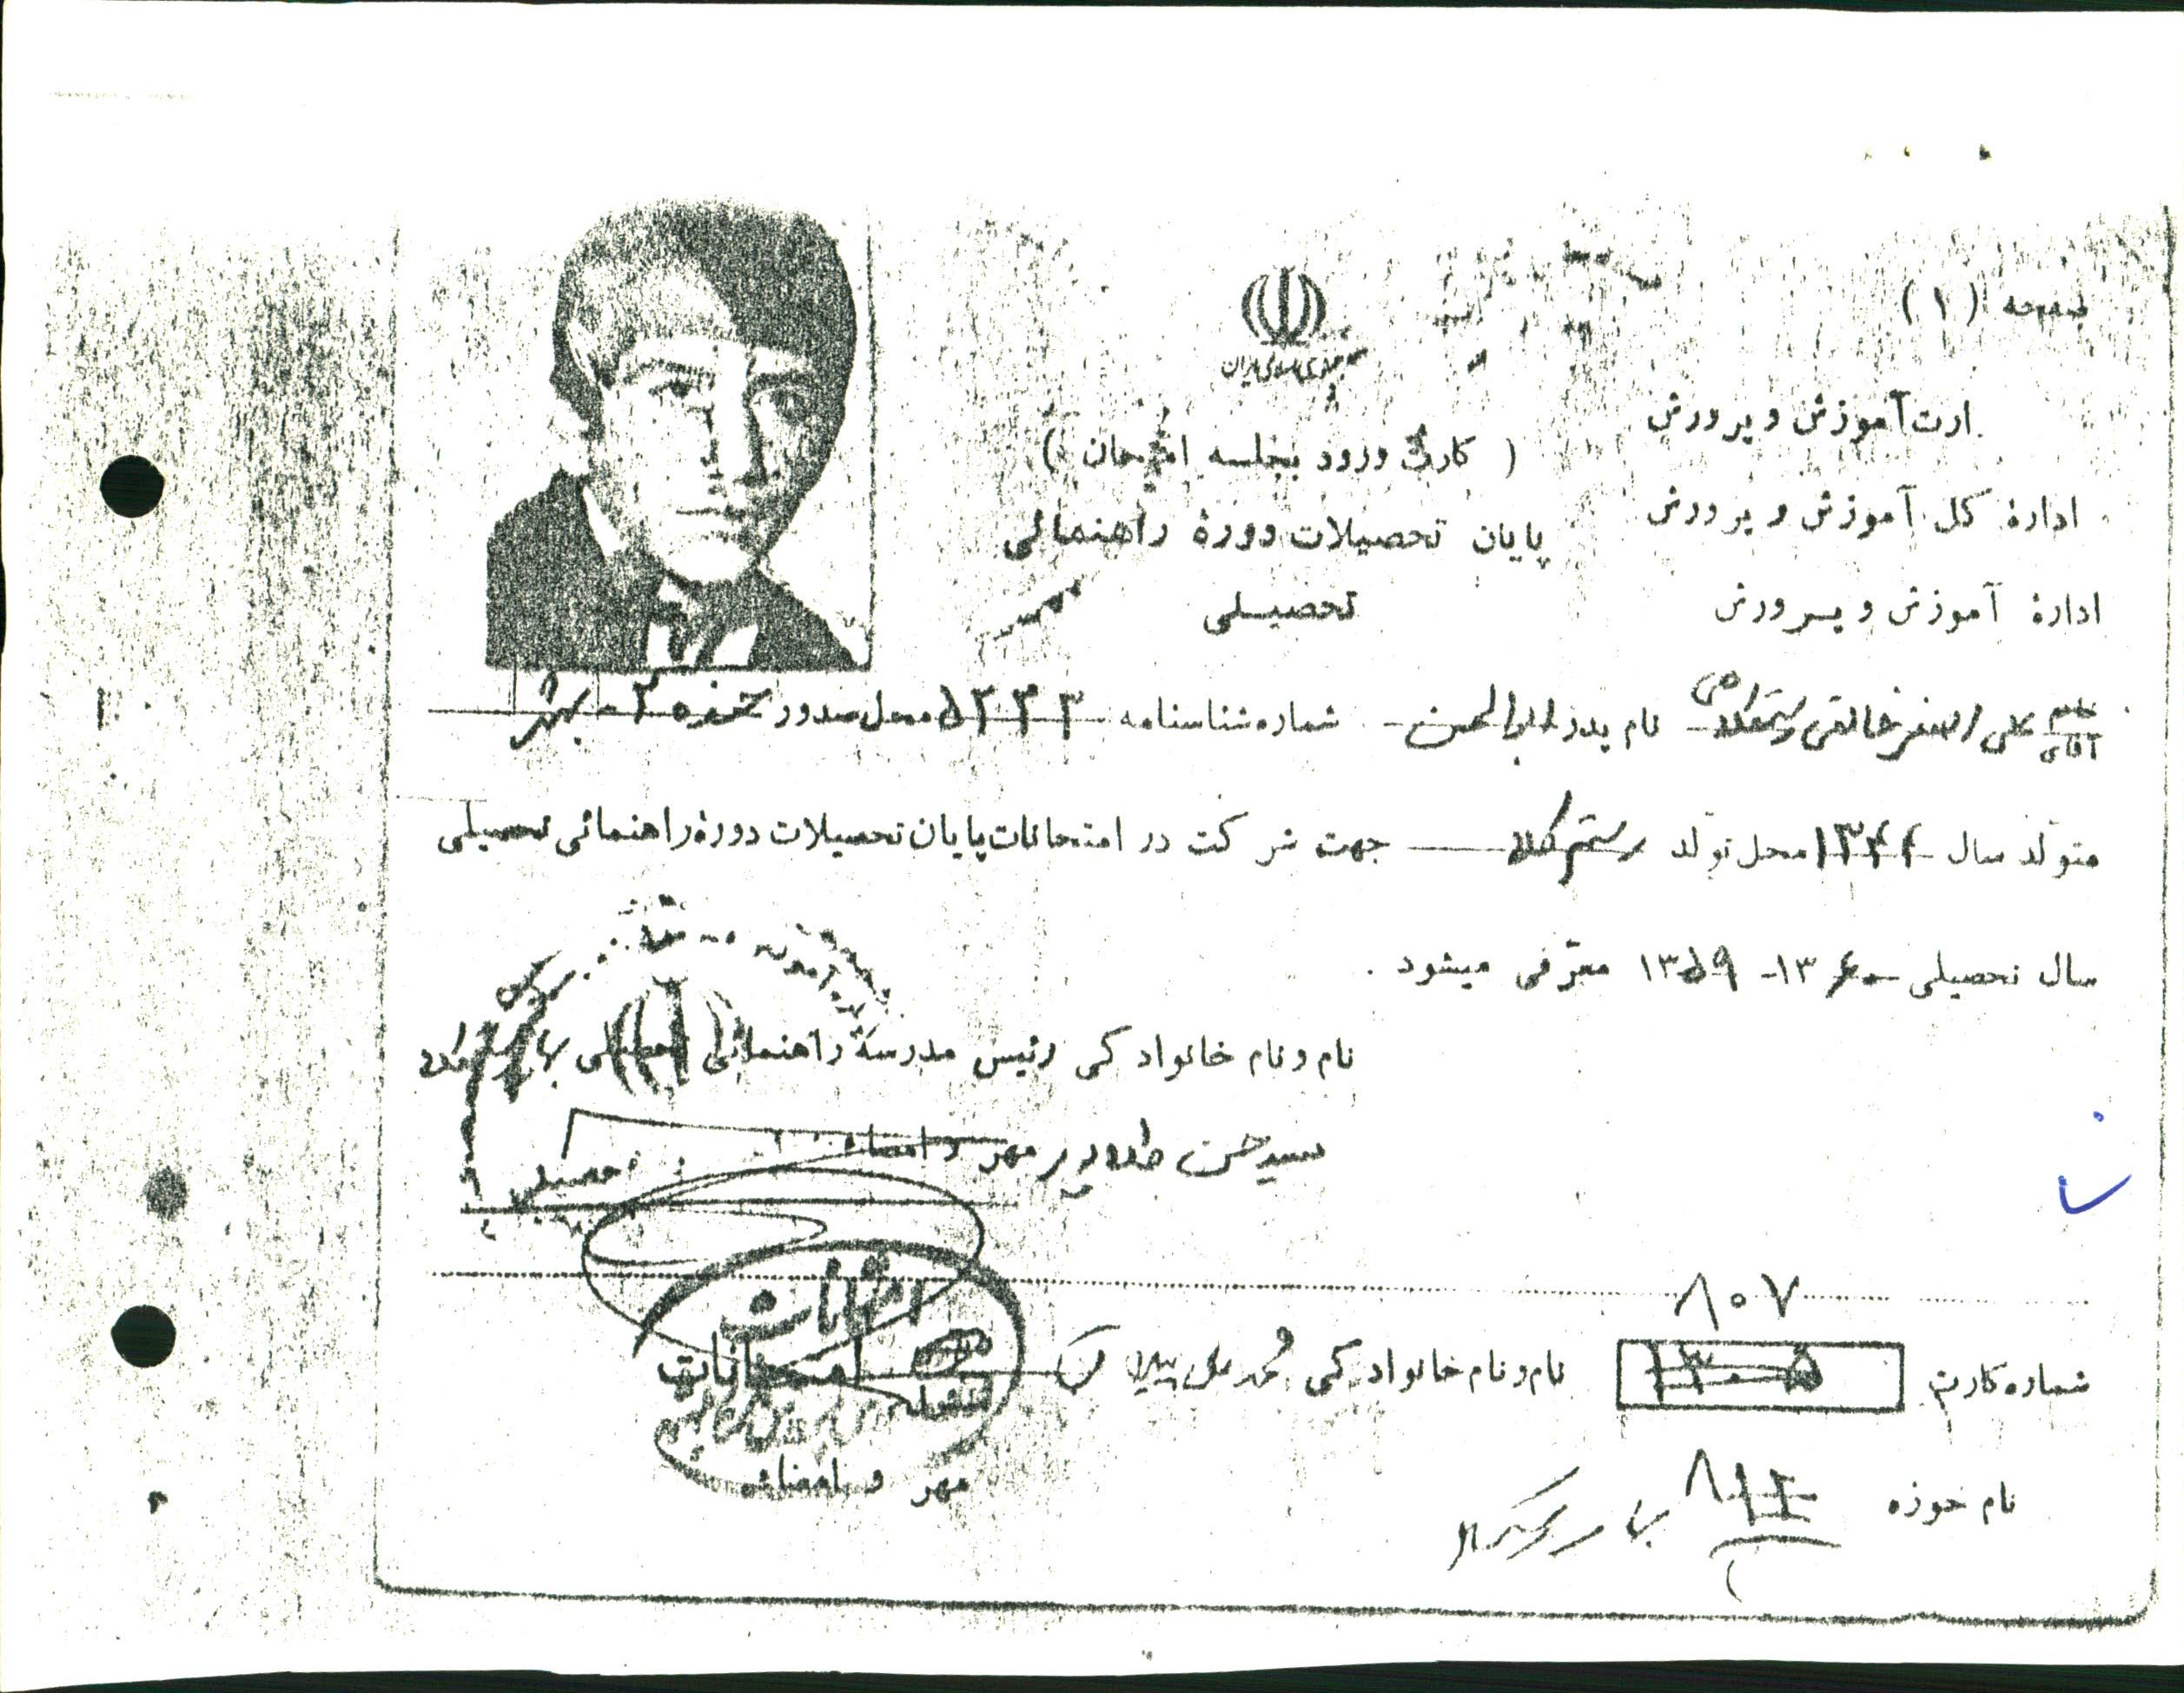 صفحه (۱)
جمهوری اسلامی ایران
ارت آموزش و پرورش
(کارت ورود بجلسه امتحان)
اداره کل آموزش و پرورش
پایان تحصیلات دورهٔ راهنمائی
تحصیلی
ادارهٔ آموزش و پرورش
آقای علی اصغر خالقی رستمکلائی نام پدر ابوالحسن شماره شناسنامه ۵۲۳۳ محل صدور حوزه ۲ - بهشهر
متولد سال ۱۳۴۴ محل تولد رستم کلا جهت شرکت در امتحانات پایان تحصیلات دوره راهنمائی تحصیلی
سال تحصیلی ۱۳۶۰ - ۱۳۵۹ معرّفی میشود .
نام و نام خانوادگی رئیس مدرسهٔ راهنمائی تحصیلی
سید حسن مهر و امضاء
تحصیلی
۸۰۷
شماره کارت ۱۳۰۵ نام و نام خانوادگی محمد علی امتحانات
امتحانات
نام حوزه
مهر و امضاء